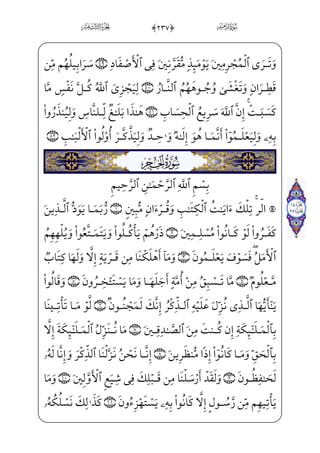 وَتَرَى ٱلْمُجْرِمِينَ يَوْمَئِذٍ مُّقَرَّنِينَ فِى ٱلْأَصْفَادِ ۝ سَرَابِيلُهُم مِّن
قَطِرَانٍ وَتَغْشَىٰ وُجُوهَهُمُ ٱلنَّارُ ۝ لِيَجْزِىَ ٱللَّهُ كُلَّ نَفْسٍ مَّا
كَسَبَتْ ۚ إِنَّ ٱللَّهَ سَرِيعُ ٱلْحِسَابِ ۝ هَٰذَا بَلَٰغٌ لِّلنَّاسِ وَلِيُنذَرُوا۟
بِهِۦ وَلِيَعْلَمُوٓا۟ أَنَّمَا هُوَ إِلَٰهٌ وَٰحِدٌ وَلِيَذَّكَّرَ أُو۟لُوا۟ ٱلْأَلْبَٰبِ ۝
سُورَةُ الحِجْرِ
بِسْمِ ٱللَّهِ ٱلرَّحْمَٰنِ ٱلرَّحِيمِ
الٓر ۚ تِلْكَ ءَايَٰتُ ٱلْكِتَٰبِ وَقُرْءَانٍ مُّبِينٍ ۝ رُّبَمَا يَوَدُّ ٱلَّذِينَ
كَفَرُوا۟ لَوْ كَانُوا۟ مُسْلِمِينَ ۝ ذَرْهُمْ يَأْكُلُوا۟ وَيَتَمَتَّعُوا۟ وَيُلْهِهِمُ
ٱلْأَمَلُ ۖ فَسَوْفَ يَعْلَمُونَ ۝ وَمَآ أَهْلَكْنَا مِن قَرْيَةٍ إِلَّا وَلَهَا كِتَابٌ
مَّعْلُومٌ ۝ مَّا تَسْبِقُ مِنْ أُمَّةٍ أَجَلَهَا وَمَا يَسْتَـْٔخِرُونَ ۝ وَقَالُوا۟
يَٰٓأَيُّهَا ٱلَّذِى نُزِّلَ عَلَيْهِ ٱلذِّكْرُ إِنَّكَ لَمَجْنُونٌ ۝ لَّوْ مَا تَأْتِينَا
بِٱلْمَلَٰٓئِكَةِ إِن كُنتَ مِنَ ٱلصَّٰدِقِينَ ۝ مَا نُنَزِّلُ ٱلْمَلَٰٓئِكَةَ إِلَّا
بِٱلْحَقِّ وَمَا كَانُوٓا۟ إِذًا مُّنظَرِينَ ۝ إِنَّا نَحْنُ نَزَّلْنَا ٱلذِّكْرَ وَإِنَّا لَهُۥ
لَحَٰفِظُونَ ۝ وَلَقَدْ أَرْسَلْنَا مِن قَبْلِكَ فِى شِيَعِ ٱلْأَوَّلِينَ ۝ وَمَا
يَأْتِيهِم مِّن رَّسُولٍ إِلَّا كَانُوا۟ بِهِۦ يَسْتَهْزِءُونَ ۝ كَذَٰلِكَ نَسْلُكُهُۥ